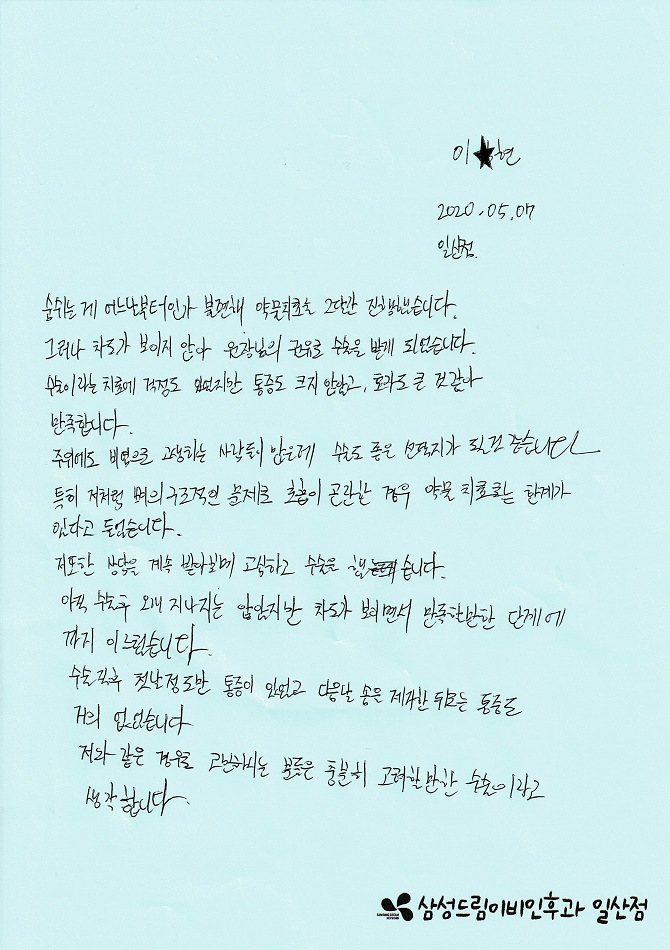 이★현
2020.05.07
일산점.
숨쉬는게 어느날부터인가 불편해 약물치료를 2달간 진행했습니다.
그러나 차도가 보이지 않아 원장님의 권유로 수술을 받게 되었습니다.
수술이라는 치료에 걱정도 있었지만 통증도 크지 않았고, 효과도 큰 것 같아
만족합니다.
주위에도 비염으로 고생하는 사람들이 많은데 수술도 좋은 선택지가 되
특히 저처럼 뼈의 구조적인 문제로 호흡이 곤란한 경우 약물 치료로는 한계가
있다고 들었습니다.
저또한 상담을 계속 받아보며 고심하고 수술은 습니다.
아직 수술후 오래 지나지는 않았지만 차도가 보이면서 만족할만한 단계에
까지 이르렀습니다.
수술직후 첫날정도만 통증이 있었고 다음날 솜을 제거한 뒤로는 통증도
거의 없었습니다
저와 같은 경우로 고민하시는 분들은 충분히 고려할만한 수술이라고
생각합니다.
삼성드림이비인후과 일산점